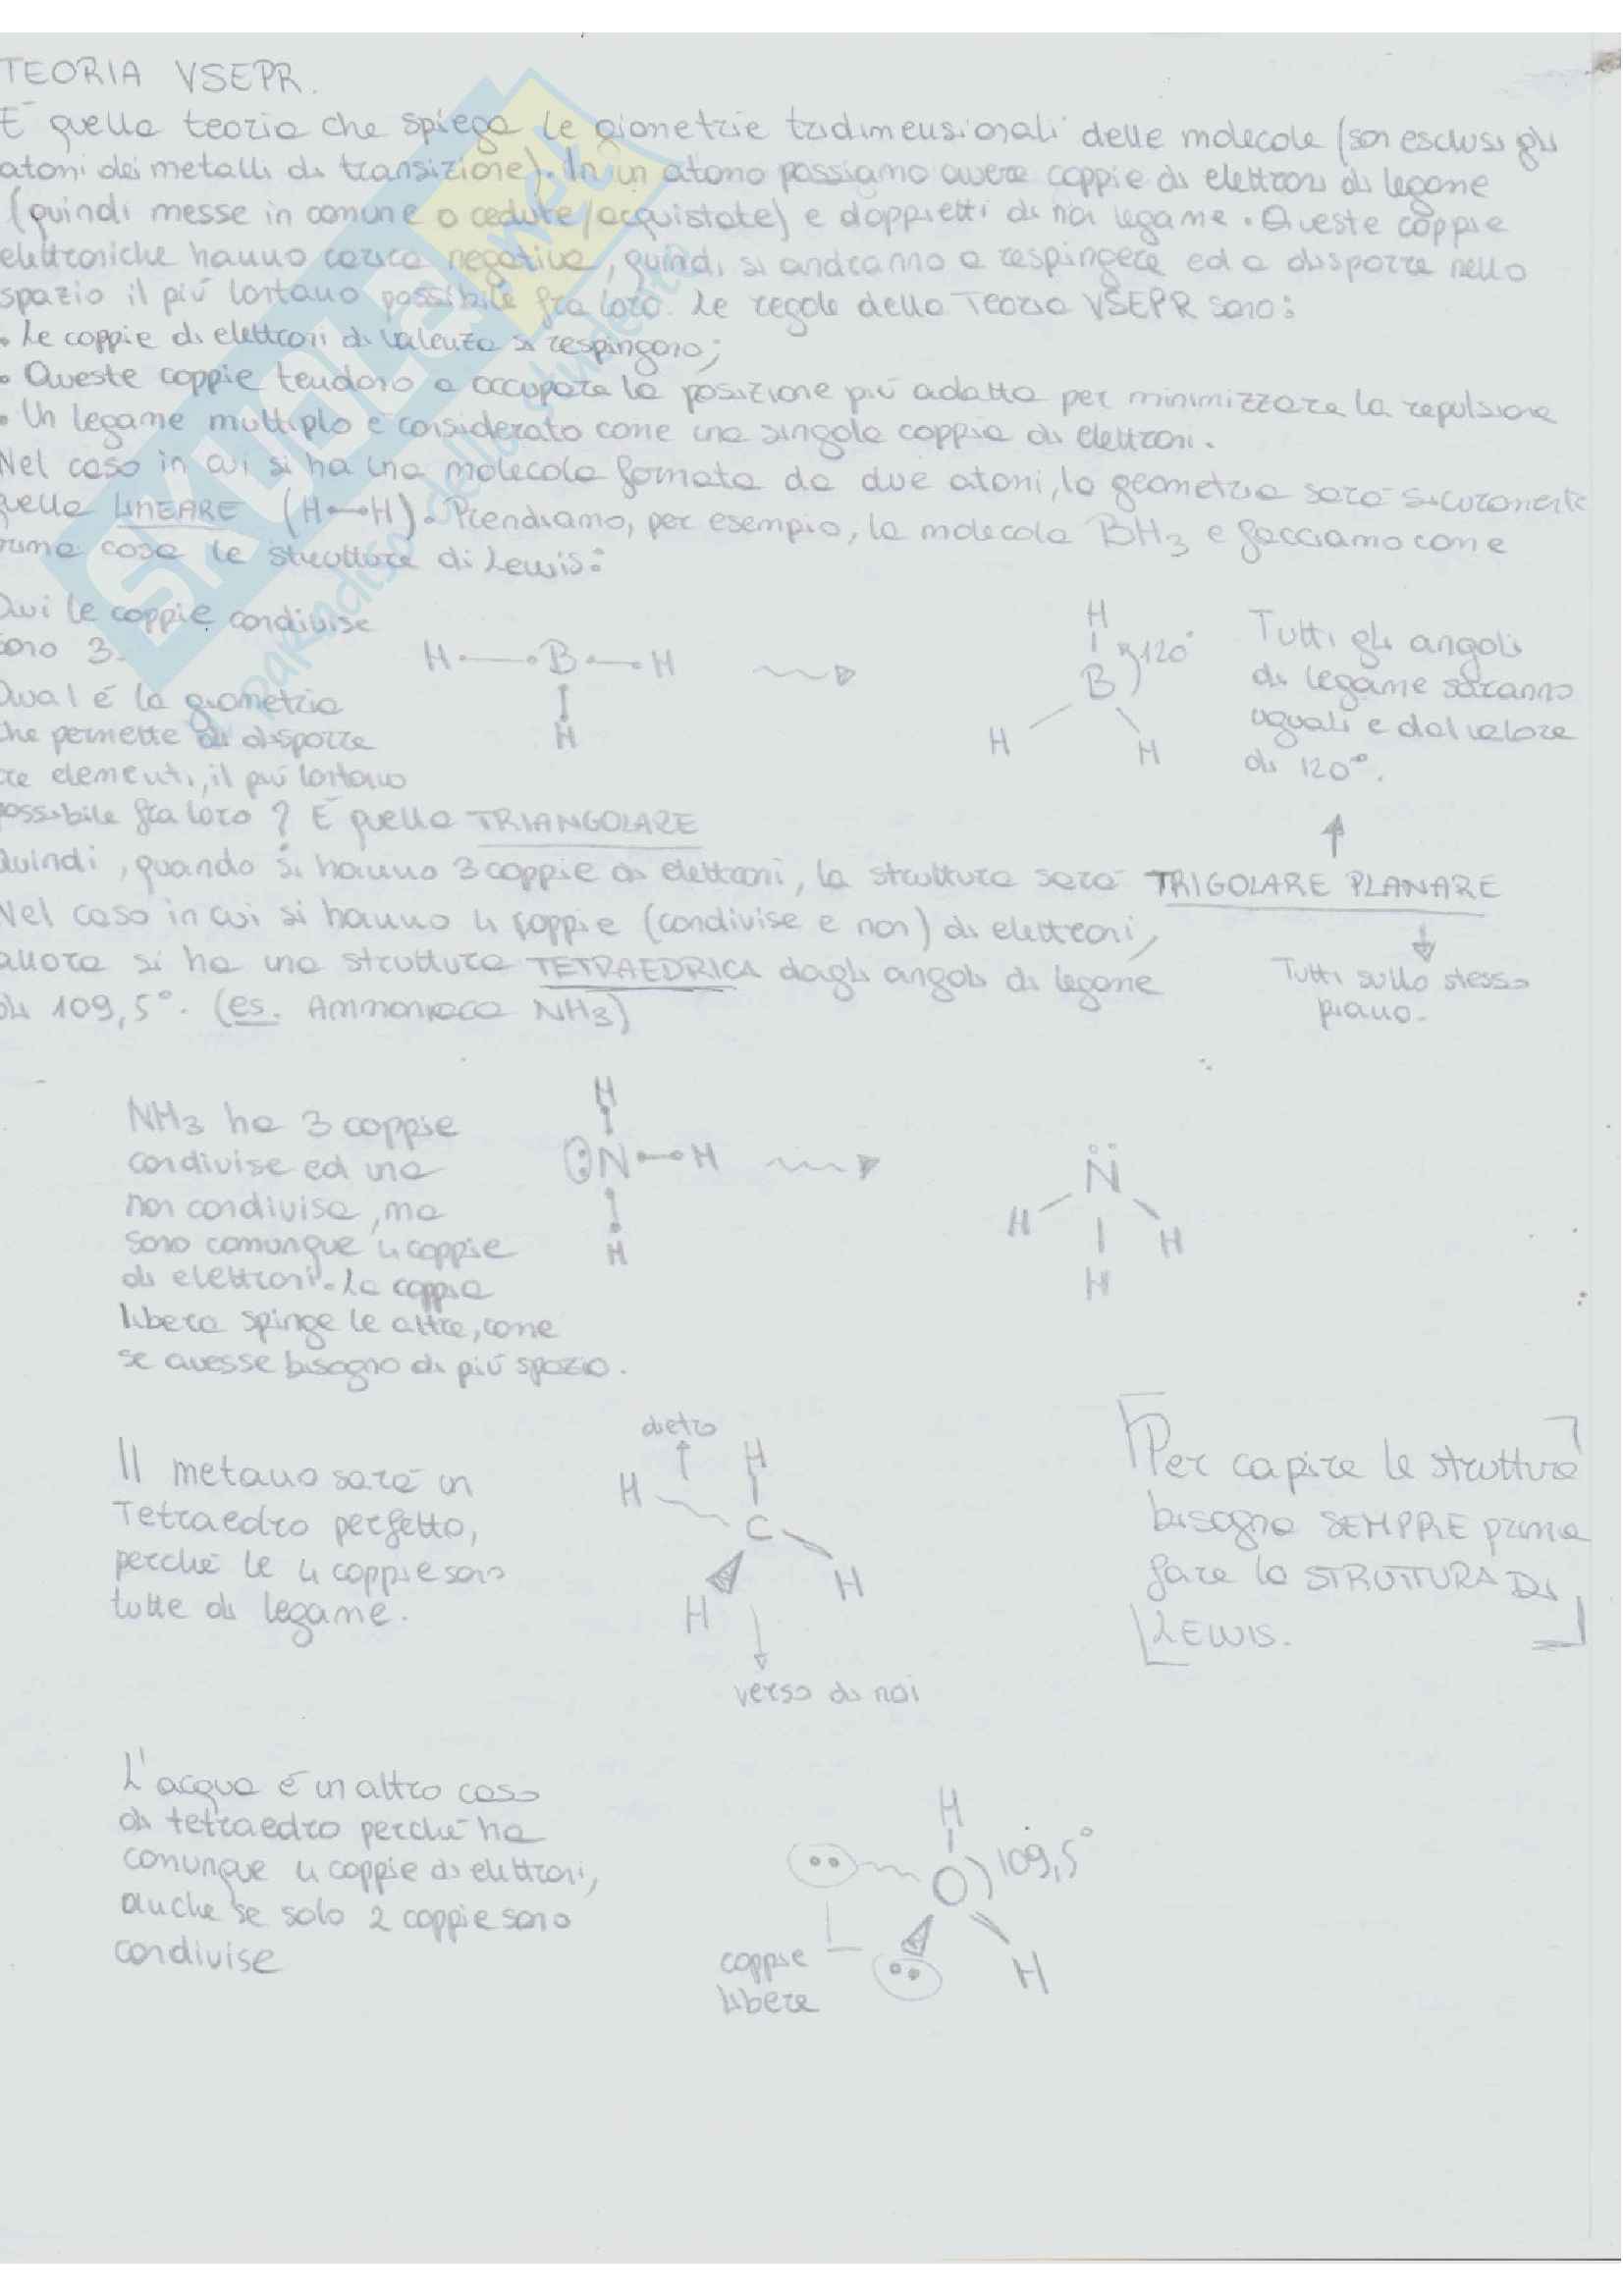 TEORIA VSEPR.
È quella teoria che spiega le giometrie tridimensionali delle molecole (son esclusi gli
atomi dei metalli di transizione). In un atomo possiamo avere coppie di elettroni di legame
(quindi messe in comune o cedute/acquistate) e doppietti di non legame. Queste coppie
elettroniche hanno carica negativa, quindi si andranno a respingere ed a disporre nello
spazio il più lontano possibile fra loro. Le regole della Teoria VSEPR sono:
• Le coppie di elettroni di valenza si respingono;
• Queste coppie tendono a occupare la posizione più adatta per minimizzare la repulsione
• Un legame multiplo è considerato come una singola coppia di elettroni.
Nel caso in cui si ha una molecola formata da due atomi, la geometria sarà sicuramente
quella LINEARE (H—H). Prendiamo, per esempio, la molecola BH3 e facciamo come
prima cosa le strutture di Lewis:
Qui le coppie condivise
sono 3.
Qual è la giometria
che permette di disporre
tre elementi, il più lontano
possibile fra loro? È quella TRIANGOLARE
H — B — H
H
H
B 120°
H H
Tutti gli angoli
di legame saranno
uguali e dal valore
di 120°.
Quindi, quando si hanno 3 coppie di elettroni, la struttura sarà TRIGOLARE PLANARE
Tutti sullo stesso
piano.
Nel caso in cui si hanno 4 coppie (condivise e non) di elettroni,
allora si ha una struttura TETRAEDRICA dagli angoli di legame
di 109,5°. (es. Ammoniaca NH3)
NH3 ha 3 coppie
condivise ed una
non condivisa, ma
sono comunque 4 coppie
di elettroni. La coppia
libera spinge le altre, come
se avesse bisogno di più spazio.
H
:N—H
H
N
H H
H
Il metano sarà un
Tetraedro perfetto,
perché le 4 coppie sono
tutte di legame.
dietro
H H
C
H H
verso di noi
Per capire le strutture
bisogna SEMPRE prima
fare la STRUTTURA DI
LEWIS.
L'acqua è un altro caso
di tetraedro perché ha
comunque 4 coppie di elettroni,
anche se solo 2 coppie sono
condivise
H
O 109,5°
H
coppie
libere
SKUOLA.net
il paradiso dello studente